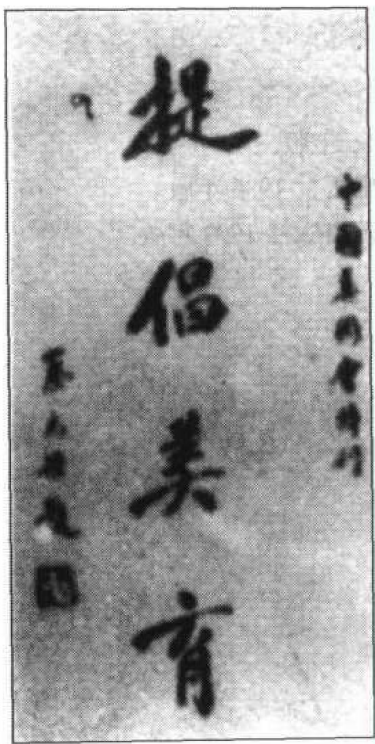 中國美術會刊
提倡美育
蔡元培題